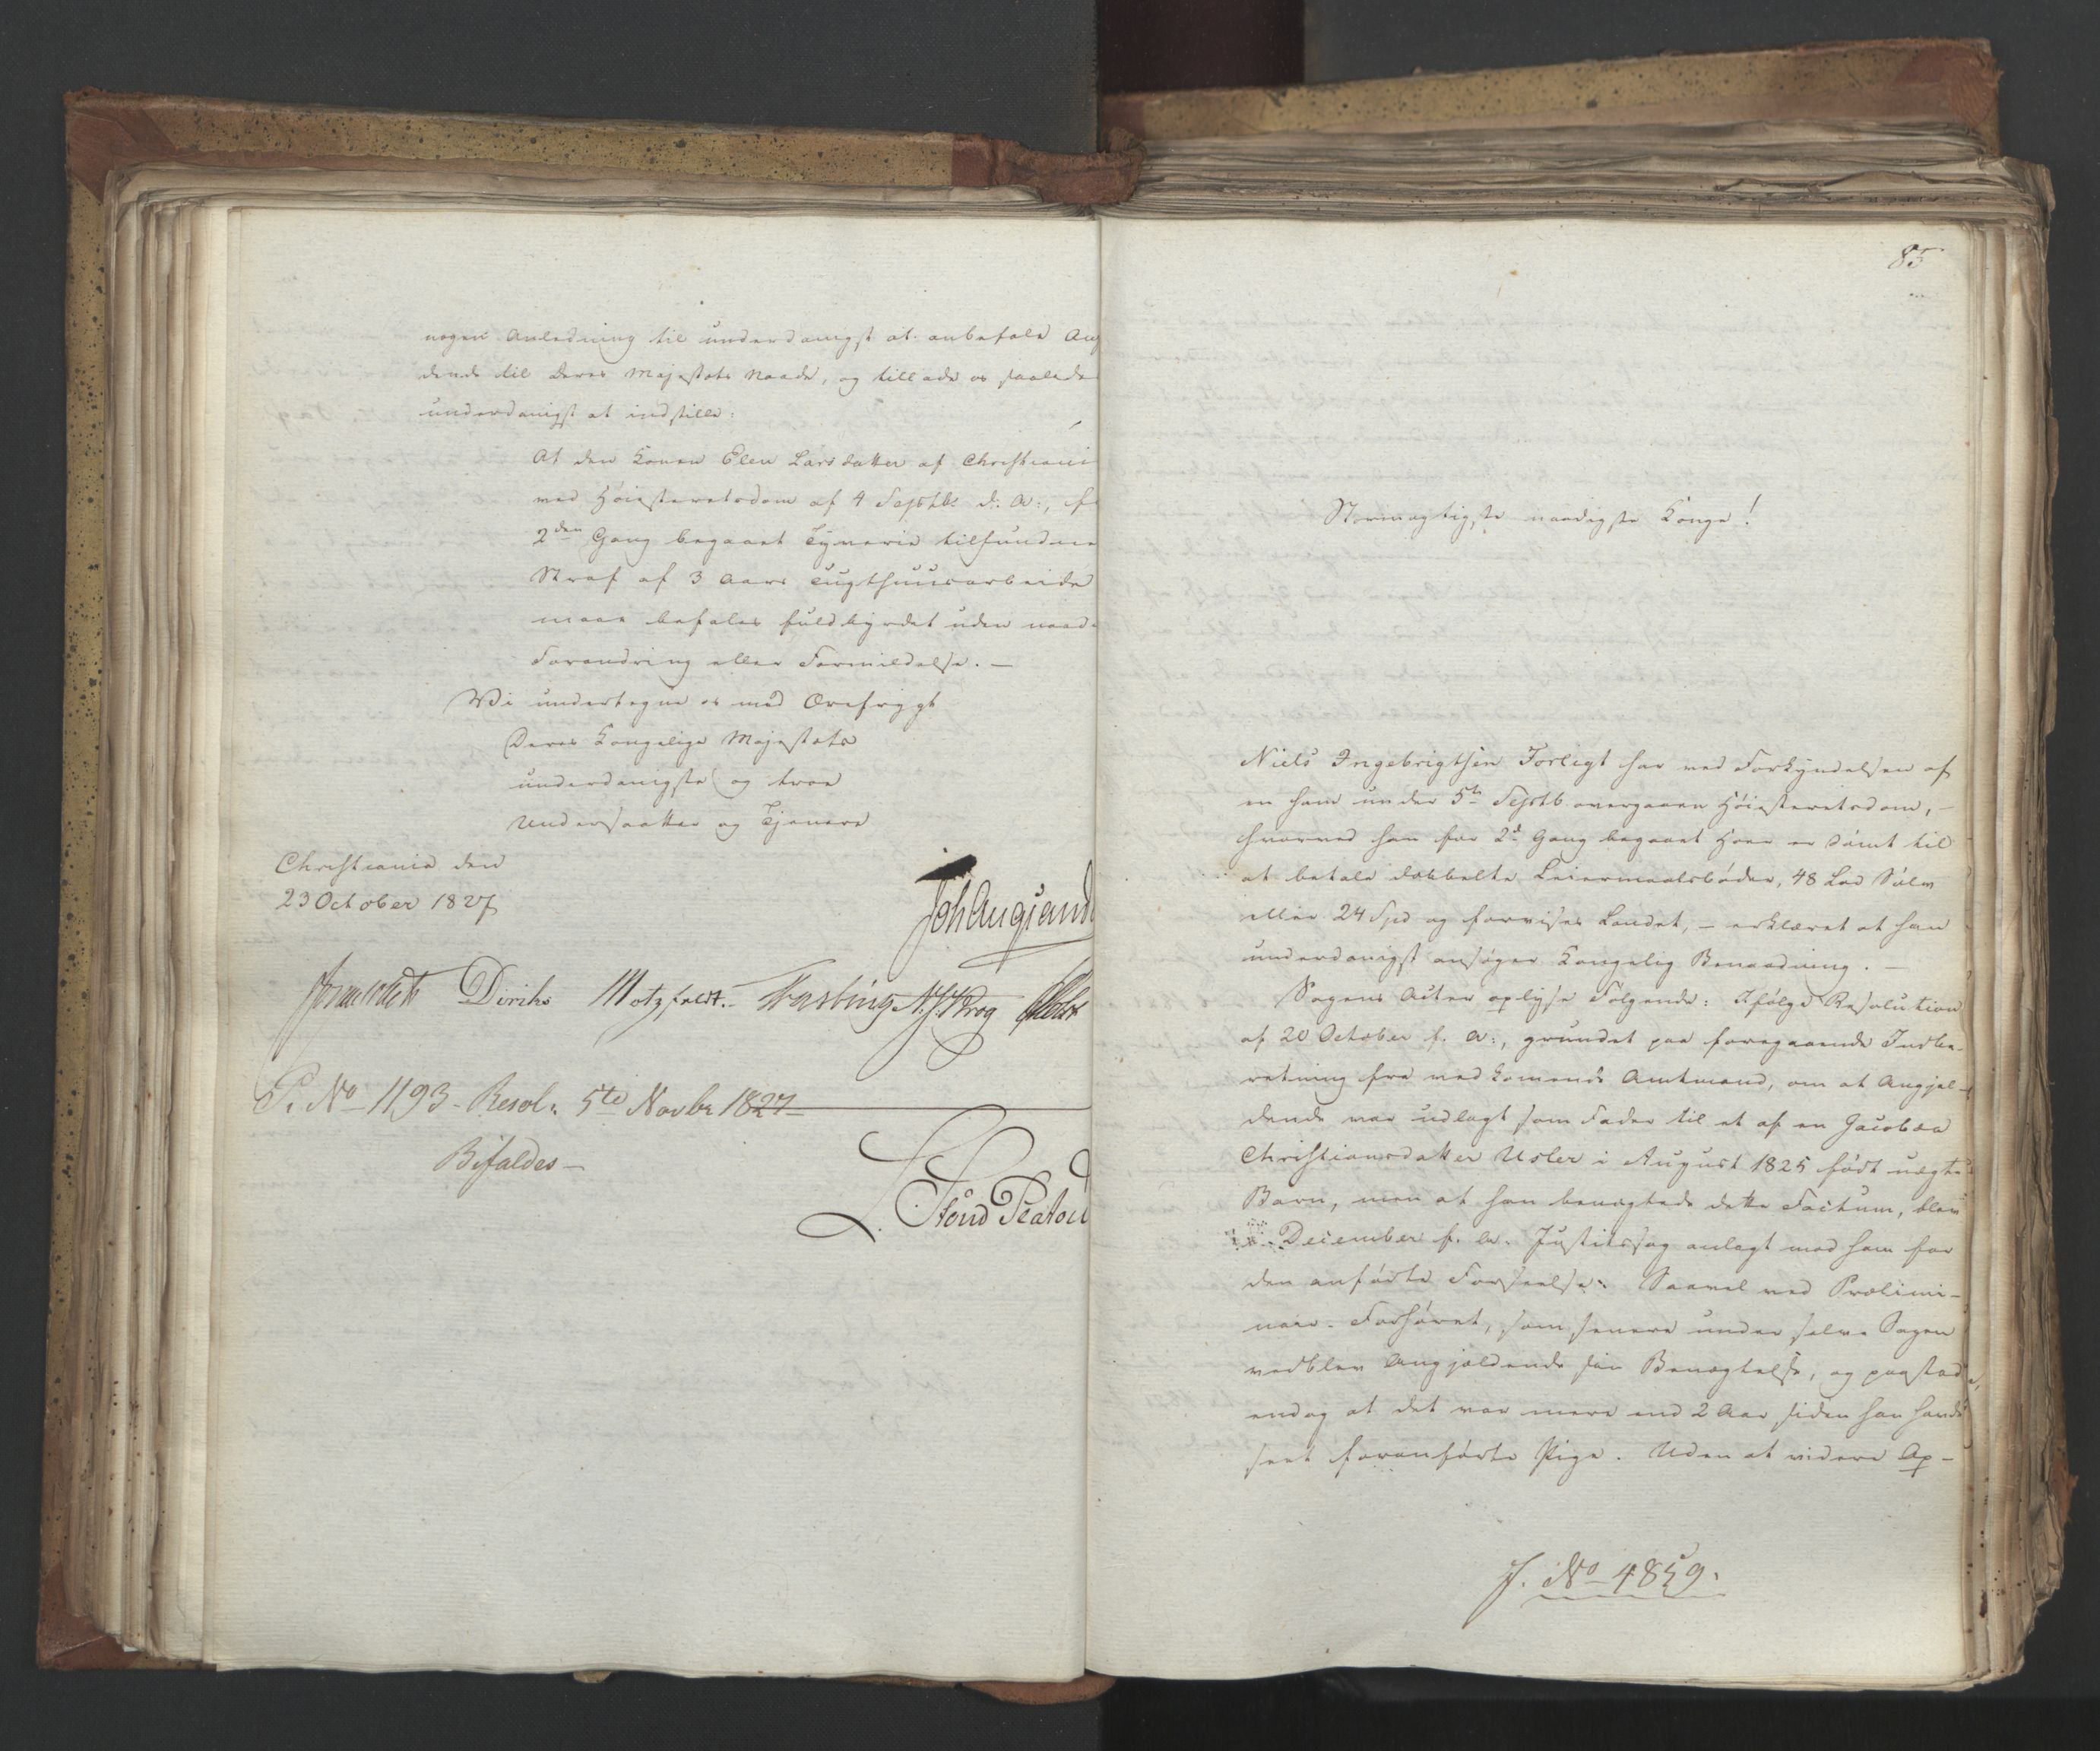 nogen Anledning til underdanigst at anbefale Ang
dende til Deres Majestæts Naade, og tillade os saalede
underdanigst at indstille:
At den Konen Elen Larsdatter af Christiani
ved Høiesteretsdom af 4 Septbr d: A:, f
2den Gang begaaet Tyverie tilfundne
Straf af 3 Aars Tugthuusarbeide
maae befales fuldbyrdet uden naad
Forandring eller Formildelse. —
Vi undertegne os med Ærefrygt
Deres Kongelige Majestæts
underdanigste og troe
Undersaatter og Tjenere
Christiania den
23 October 1827
Diriks Motzfeldt. Fasting N. J. Krog
P. No 1193 - Resol. 5te Novbr 1827 —
Bifaldes —
85
Stormægtigste naadigste Konge!
Niels Ingebrigtsen Torlegt har ved Forkyndelsen af
en ham under 5te Septb. overgaaen Høiesteretsdom, —
hvorved han for 2d Gang begaaet Hoer er dømt til
at betale dobbelte Leiermaalsbøder, 48 Lod Sølv
eller 24 Spd og forvises Landet, — erklæret at han
underdanigst ansøger Kongelig Benaadning. —
Sagens Acter oplyse Følgende: Ifølge Resolution
af 20 October f. A:, grundet paa foregaaende Indbe-
retning fra vedkomende Amtmand, om at Angjel-
dende var udlagt som Fader til et af en Jacobæa
Christiansdatter Usler i August 1825 født uægte
Barn, men at han benægtede dette Factum, blev
December f. A. Justitssag anlagt mod ham for
den anførte Forseelse. Saavel ved Prælimi-
nair-Forhøret, som senere under selve Sagen
vedblev Angjældende sin Benægtelse, og paastod
endog at det var mere end 2 Aar siden han havde
seet foranførte Pige. Uden at videre Op-
J. No 4859.